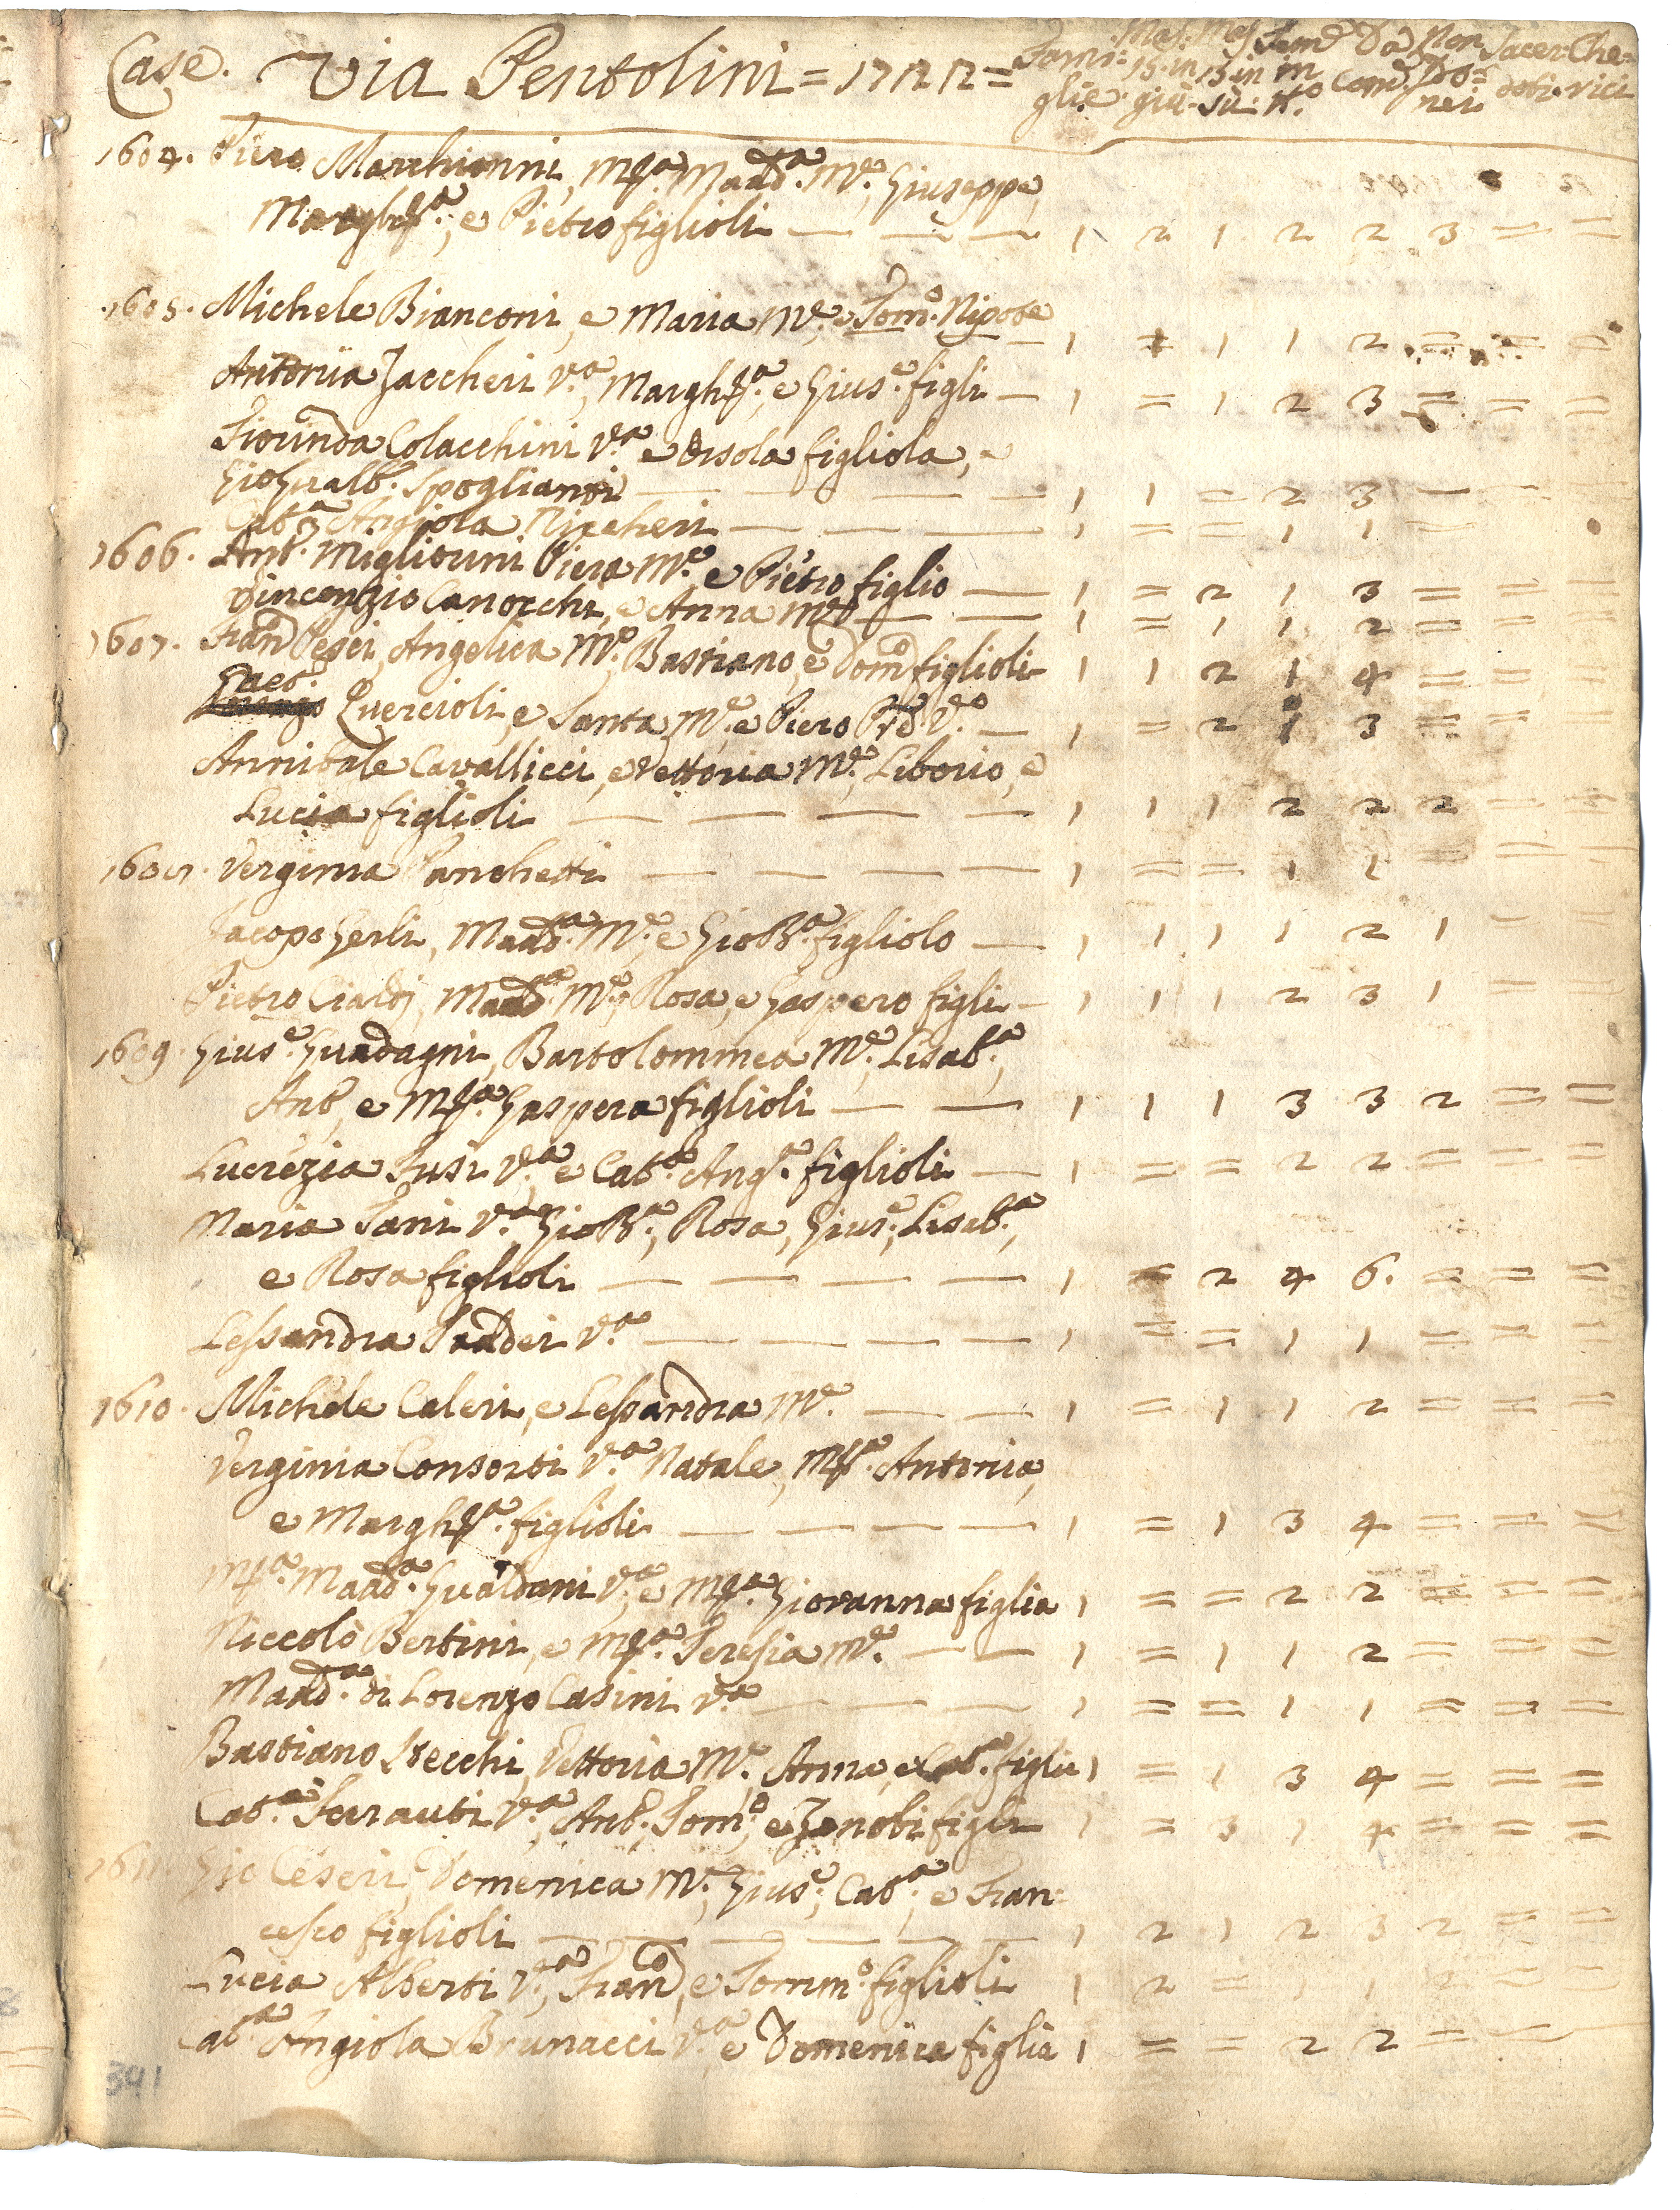 Case. Via Pentolini = 1722 = Fami: Mas: Mas. Fem.e Da Non Sacer: Che=
15. in 15 in in Com. Do=
glie. giù. sù. tt.o nei doti. rici
1604. Piero Marchionni, M.ra Madd.a M.e, Giuseppe,
Margh.ta, e Pietro figlioli — — — 1 2 1 2 2 3 = =
1605. Michele Bianconi, e Maria M.e, e Tom.o Nipote
— 1 = 1 1 2 = = =
Antonia Zaccheri V.a, Margh.ta, e Gius.e figli — 1 = 1 2 3 = = =
Fiorinda Colacchini V.a e Orsola figliola, e
Gio: Gualb. Spoglianti — — — — 1 1 = 2 3 — —
Cat.a Angiola Niccheri — — — 1 = = 1 1 —
1606. Ant. Migliorini Piera M.e, e Pietro figlio — 1 = 2 1 3 = =
Vincenzio Canocchi, e Anna M.e — — 1 = 1 1 2 = =
1607. Fran.o Pesci, Angelica M.e, Bastiano, e Dom.o figlioli 1 1 2 1 4 = = =
Gaet.o
Quercioli, e Santa M.e e Piero Pre V.o — 1 = 2 1 3 = =
Annibale Cavallicci, e Vettoria M.e, Liborio, e
Lucia figlioli — — — — 1 1 1 2 2 2 = =
1608. Verginia Panchetti — — — — 1 = = 1 1 = = =
Jacopo Gerli, Madd.a M.e, e Gio B.a figliolo — 1 1 1 1 2 1 = =
Pietro Ciardi, Madd.a M.e, Rosa, e Gaspero figli — 1 1 1 2 3 1 = =
1609. Gius.e Guadagni, Bartolommea M.e, Lisab.a,
Ant., e M.ra Gaspera figlioli — — 1 1 1 3 3 2 = =
Lucrezia Susi V.a e Cat.a Ang.a figlioli — 1 = = 2 2 = = =
Maria Sani V.a, Gio B.a, Rosa, Gius.e, Lisab.a,
e Rosa figlioli — — — — 1 = 2 4 6. = = =
Lessandra Taddei V.a — — — — 1 = = 1 1 = = =
1610. Michele Caleri, e Lessandra M.e — — 1 = 1 1 2 = = =
Verginia Consorti V.a Natale, M.ra Antonia,
e Margh.ta figlioli — — — — 1 = 1 3 4 = = =
M.ra Madd.a Gualdani V.a, e M.ra Giovanna figlia 1 = = 2 2 = = =
Niccolò Bertini, e M.ra Teresia M.e — — 1 = 1 1 2 = = =
Madd.a di Lorenzo Casini V.a — — — 1 = = 1 1 = = =
Bastiano Stecchi, Vettoria M.e, Anna, e Cat.a figlie 1 = 1 3 4 = = =
Cat.a Ferrauti V.a, Ant., Tom.o, e Zanobi figli 1 = 3 1 4 = = =
1611. Gio Ceseri, Domenica M.e, Gius.e, Cat.a, e Fran=
cesco figlioli — — — — — — 1 2 1 2 3 2 = =
Lucia Alberti V.a, Fran.co, e Tomm.o figlioli 1 2 = 1 1 2 = =
Cat.a Angiola Brunacci V.a e Domenica figlia 1 = = 2 2 = —
341